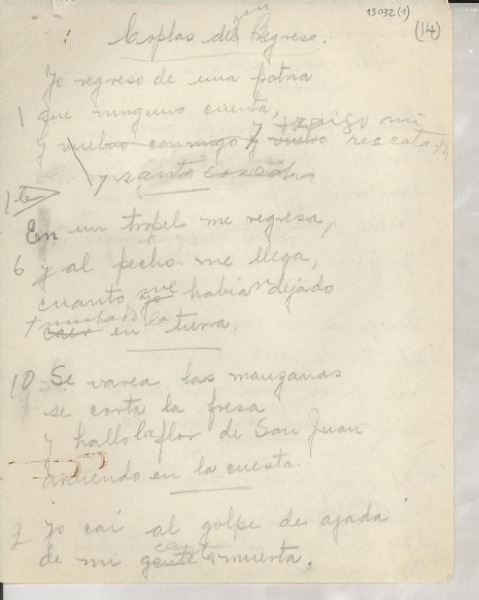 13032(1)
(14)
Coplas del Regreso.
Yo regreso de una patria
1 que ninguno cuenta,
y vuelvo conmigo y vuelvo rescatada
y
En un tropel me regresa,
6 y al pecho me llega,
cuanto me habían dejado
tumbado en la tierra.
10 Se varea las manzanas
se corta la fresa
y hallo la flor de San Juan
ardiendo en la cuesta.
Yo caí al golpe de azada
de mi gente muerta,